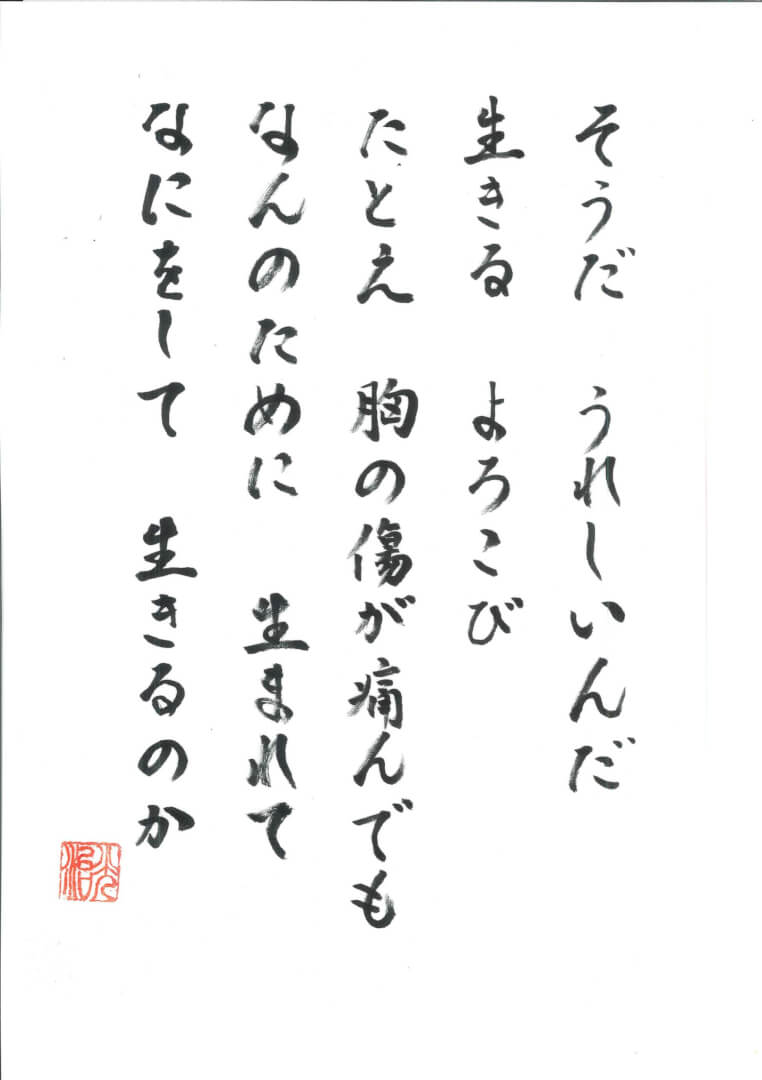 そうだ　うれしいんだ
生きる　よろこび
たとえ　胸の傷が痛んでも
なんのために　生まれて
なにをして　生きるのか